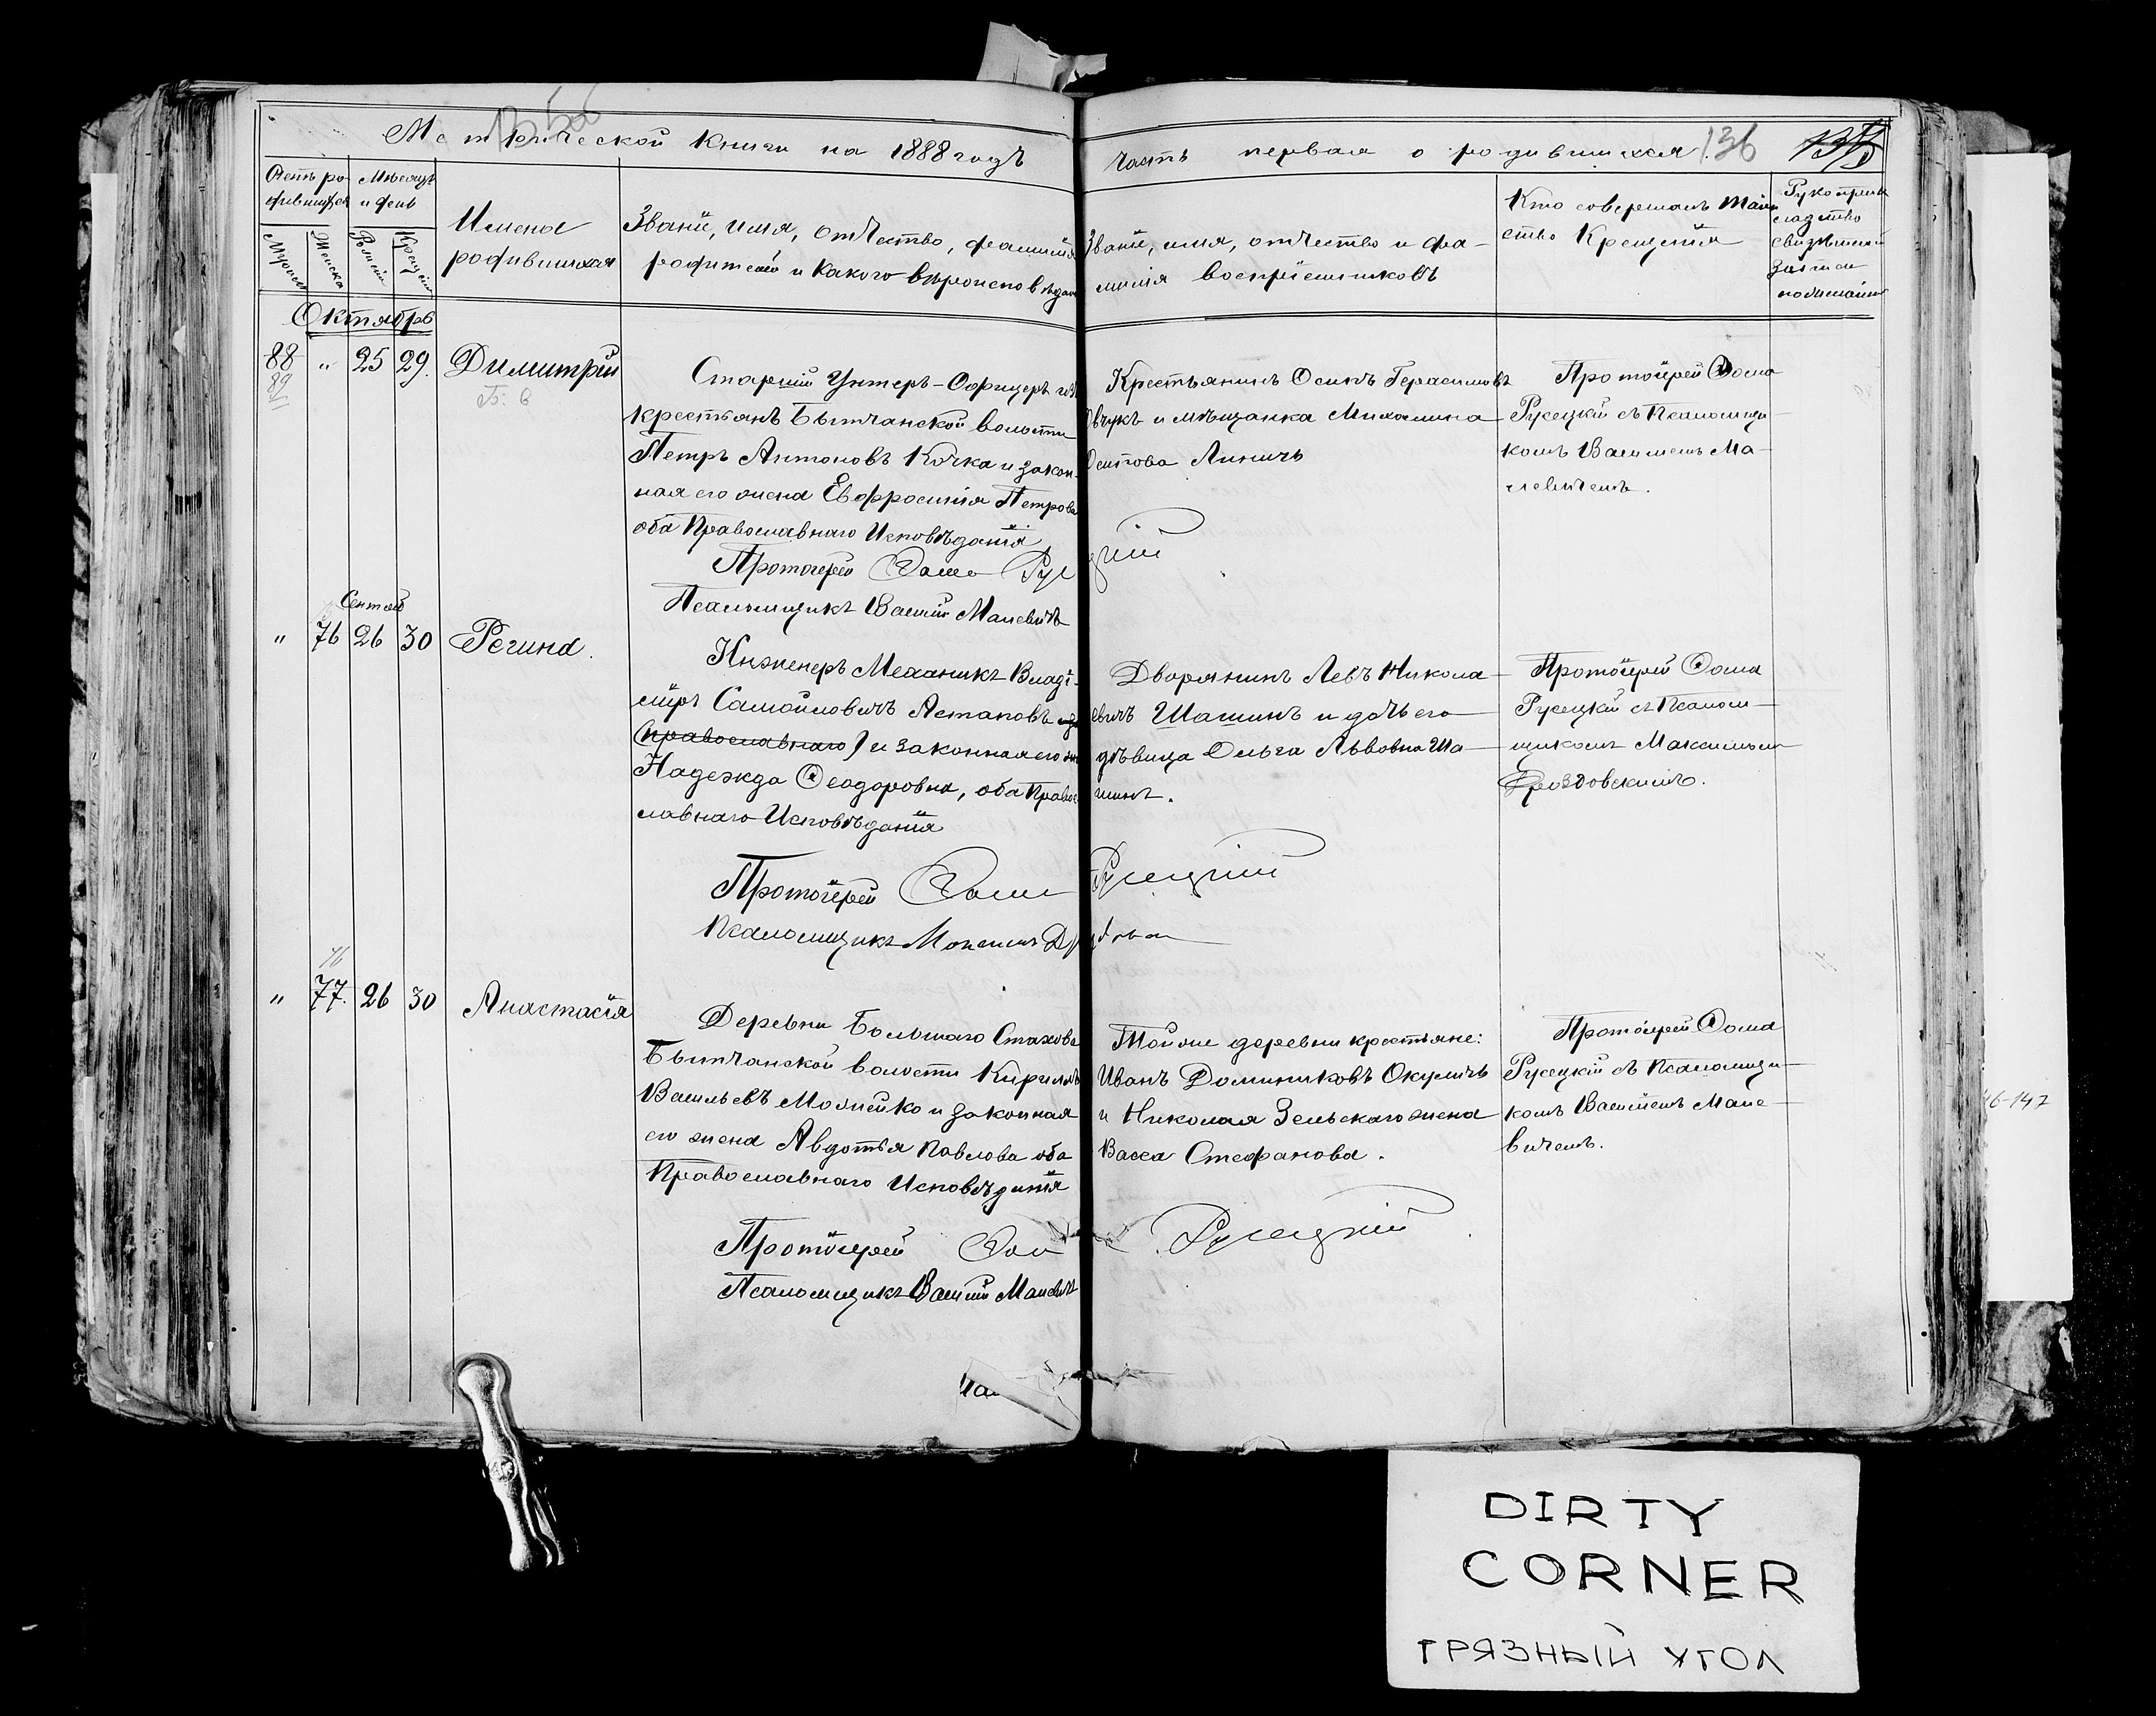 Метрической книги на 1888 годъ
часть первая о родившихся.
136
Счетъ ро-
дившихся
Мѣсяцъ
и день
Имена
родившихся
Званіе, имя, отчество, фамилія
родителей и какого вѣроисповѣдан
Званіе, имя, отчество и фа-
милія воспріемниковъ
Кто совершалъ таин
ство Крещенія
Рукоприк
ладство
свидѣтелей
записи
Октябрь
88
89
"
25
29.
Димитрій
Старшій Унтеръ-Офицеръ изъ
крестьянъ Бытчанской волости
Петръ Антоновъ Кочка и закон-
ная его жена Евфросинія Петрова
оба Православнаго Исповѣданія
Протоіерей Ѳома Русецкій
Псаломщикъ Василій Малевичъ
Крестьянинъ Осипъ Герасимовъ
Овчукъ и мѣщанка Михалина
Осипова Линичъ
Протоіерей Ѳома
Русецкій съ Псаломщи-
комъ Василіемъ Ма-
левичемъ.
Сентяб
"
76
26
30
Регина.
Инженеръ Механикъ Влади-
міръ Самойловичъ Астаповъ
(православнаго) и законная его же
Надежда Ѳеодоровна, оба Право
славнаго Исповѣданія
Протоіерей Ѳома Русецкій
Псаломщикъ
Дворянинъ Левъ Никола-
евичъ Шашинъ и дочь его
дѣвица Ольга Львовна Ша-
шинъ.
Протоіерей Ѳома
Русецкій съ Псалом-
щикомъ Максимомъ
Дроздовскимъ.
76
"
77.
26
30
Анастасія
Деревни Большаго Стахова
Бытчанской волости Кириллъ
Васильевъ Можейко и законная
его жена Авдотья Павлова оба
Православнаго Исповѣданія
Протоіерей Ѳома Русецкій
Псаломщикъ Василій Малевичъ
Той же деревни крестьяне:
Иванъ Доминиковъ Окуличъ
и Николая Зельскаго жена
Васса Стефанова.
Протоіерей Ѳома
Русецкій съ Псаломщи-
комъ Василіемъ Мале-
вичемъ.
46-147
DIRTY
CORNER
ГРЯЗНЫЙ УГОЛ